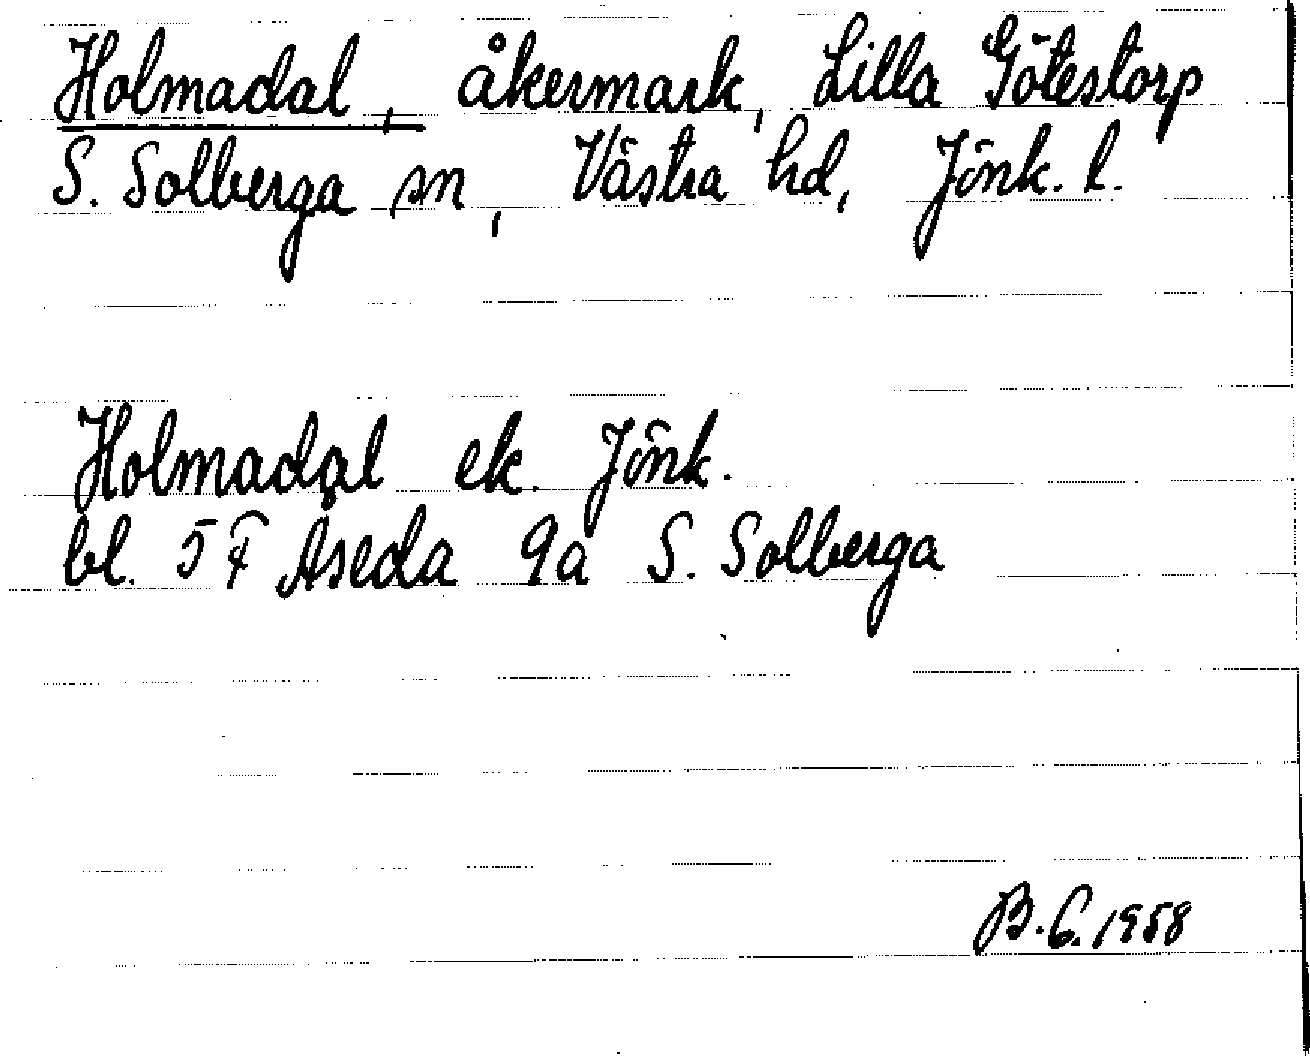 Holmadal, åkermark, Lilla Götestorp
S. Solberga sn, Västra hd, Jönk. l.
Holmadal ek. Jönk.
bl. 5 F Åseda 9a S. Solberga
B. G. 1958